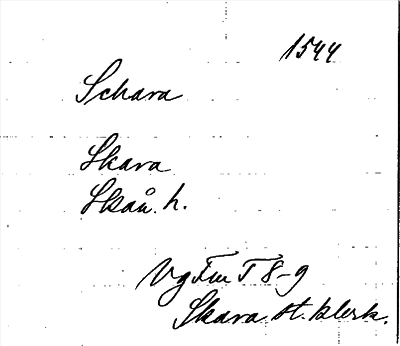 1544
Schara
Skara
Skån. h.
Vg Fm T 8-9
Skara st. klerk.